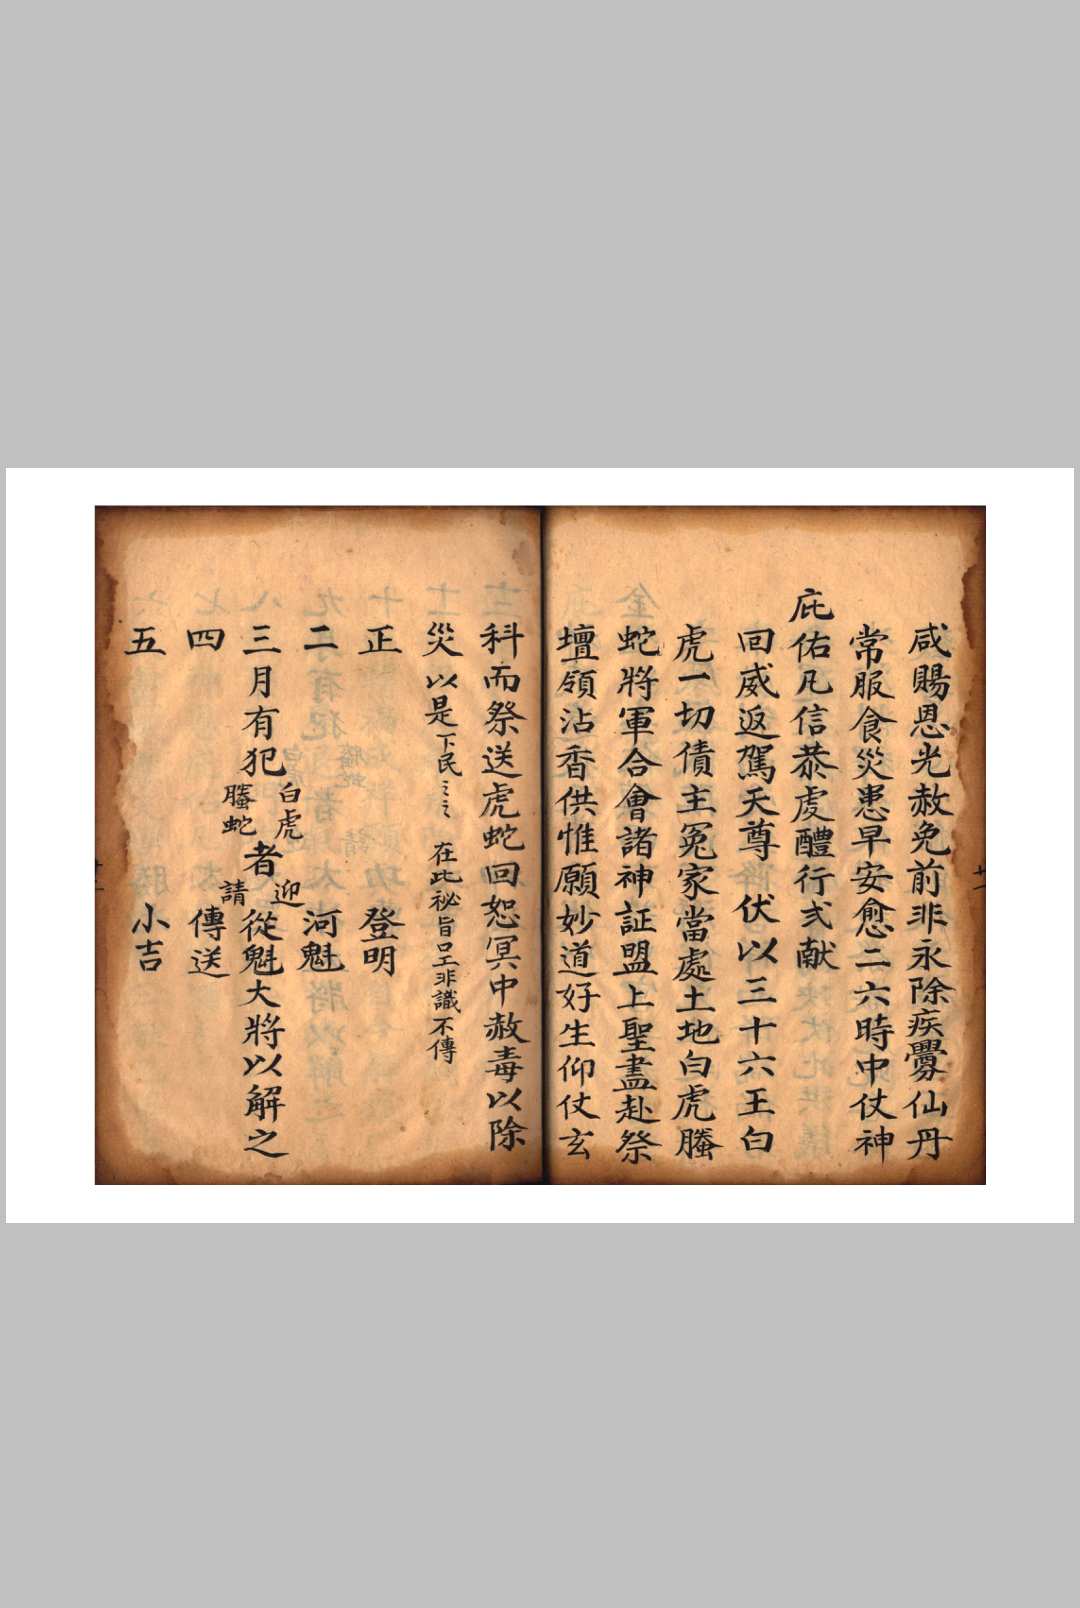 咸賜恩光赦免前非永除疾釁仙丹
常服食災患早安愈二六時中仗神
庇佑凡信恭虔醴行弍献
回威返駕天尊 伏以三十六王白
虎一切債主冤家當處土地白虎螣
蛇將軍合會諸神証盟上聖盡赴祭
壇領沾香供惟願妙道好生仰仗玄
科而祭送虎蛇回恕冥中赦毒以除
災 以是下民〻之〻 在此秘旨口工非識不傳
正 登明
二 河魁
三月有犯白虎螣蛇者迎請從魁大將以解之
四 傳送
五 小吉